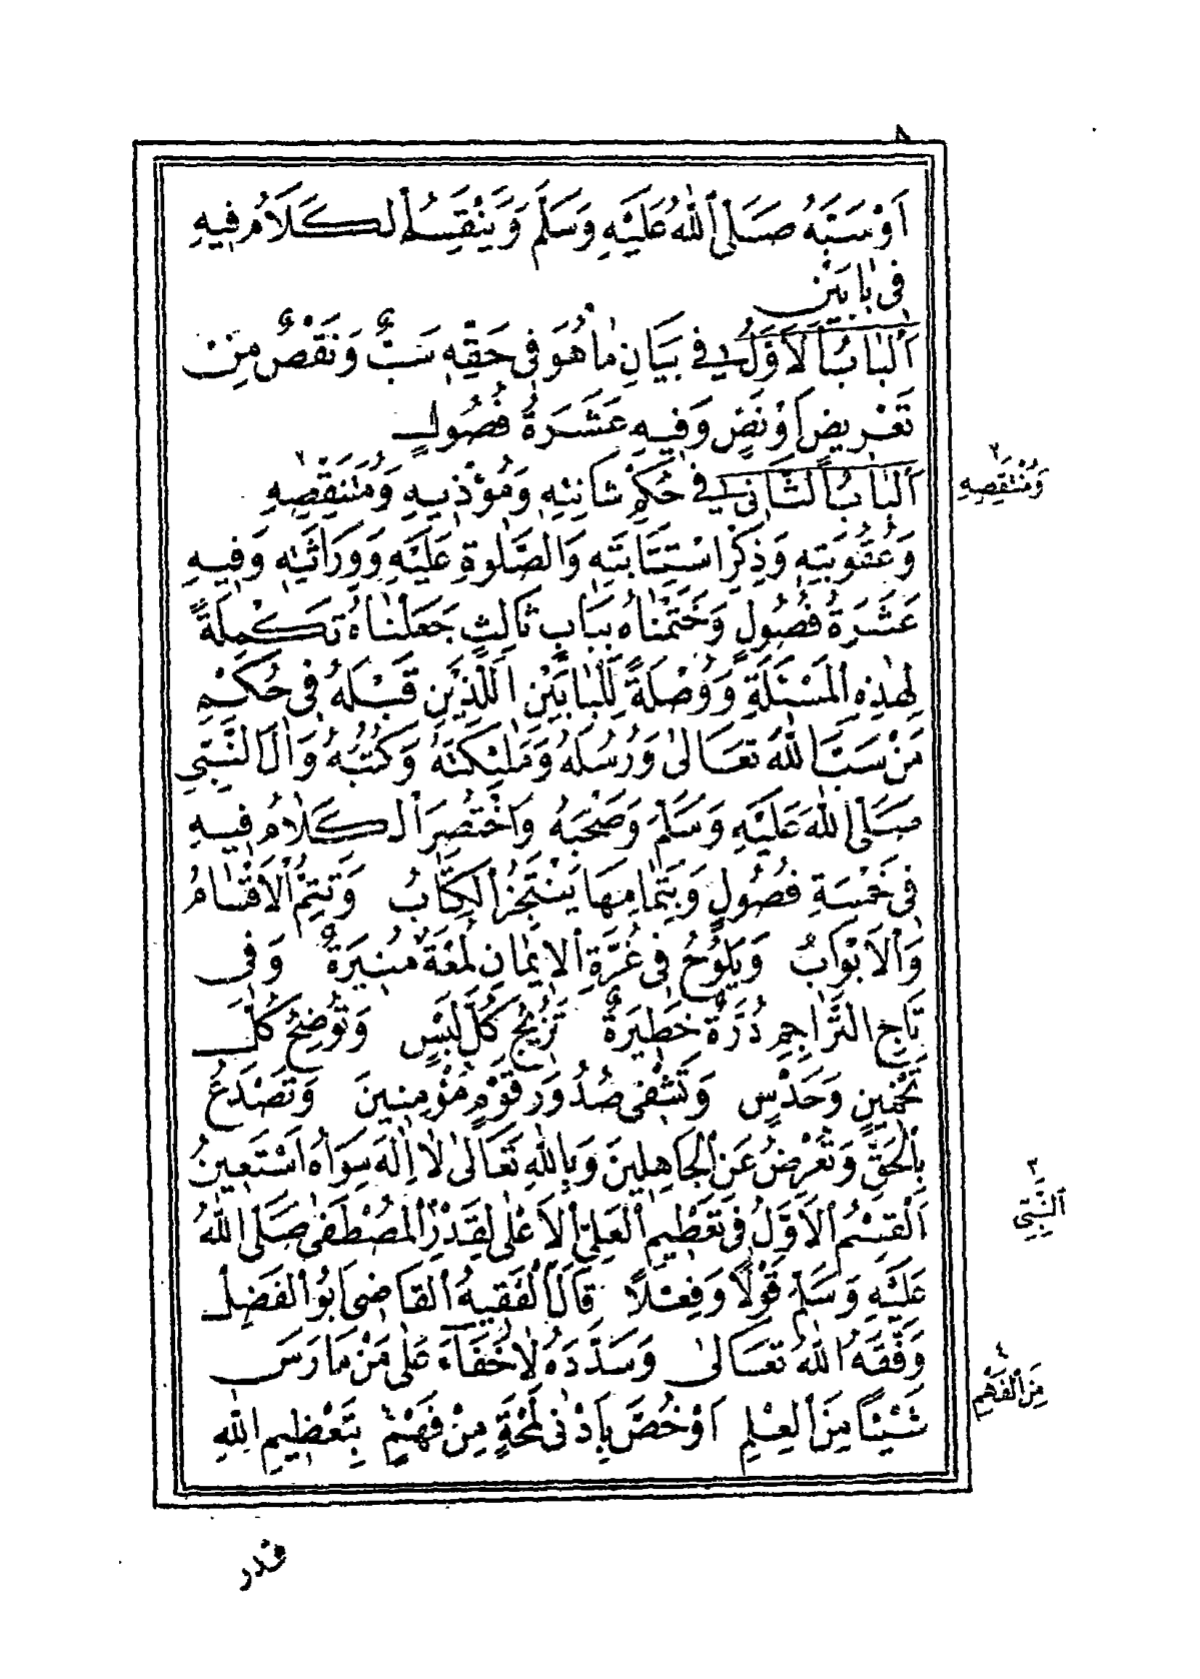 ٨
اَوْ سَبَّهُ صَلَّى اللّٰهُ عَلَيْهِ وَسَلَّمَ وَيَنْقَسِمُ الْكَلَامُ فِيهِ
فِى بَابَيْنِ
اَلْبَابُ الْاَوَّلُ فِى بَيَانِ مَا هُوَ فِى حَقِّهِ سَبٌّ وَنَقْصٌ مِنْ
تَعْرِيضٍ اَوْ نَصٍّ وَفِيهِ عَشَرَةُ فُصُولٍ
اَلْبَابُ الثَّانِى فِى حُكْمِ شَانِئِهِ وَمُؤْذِيهِ وَمُتَنَقِّصِهِ ٢
وَمُنْتَقِصِهِ ٢
وَعُقُوبَتِهِ وَذِكْرِ اسْتِتَابَتِهِ وَالصَّلٰوةِ عَلَيْهِ وَوِرَاثَتِهِ وَفِيهِ
عَشَرَةُ فُصُولٍ وَخَتَمْنَاهُ بِبَابٍ ثَالِثٍ جَعَلْنَاهُ تَكْمِلَةً
لِهٰذِهِ الْمَسْئَلَةِ وَوُصْلَةً لِلْبَابَيْنِ اللَّذَيْنِ قَبْلَهُ فِى حُكْمِ
مَنْ سَبَّ اللّٰهَ تَعَالٰى وَرُسُلَهُ وَمَلٰئِكَتَهُ وَكُتُبَهُ وَاٰلَ النَّبِىِّ
صَلَّى اللّٰهُ عَلَيْهِ وَسَلَّمَ وَصَحْبَهُ وَاخْتُصِرَ الْكَلَامُ فِيهِ
فِى خَمْسَةِ فُصُولٍ وَبِتَمَامِهَا يَنْتَجِزُ الْكِتَابُ وَتَتِمُّ الْاَقْسَامُ
وَالْاَبْوَابُ وَيَلُوحُ فِى غُرَّةِ الْاِيمَانِ لُمْعَةٌ مُنِيرَةٌ وَفِى
تَاجِ التَّرَاجِمِ دُرَّةٌ خَطِيرَةٌ تُزِيحُ كُلَّ لَبْسٍ وَتُوضِحُ كُلَّ
تَخْمِينٍ وَحَدْسٍ وَتَشْفِى صُدُورَ قَوْمٍ مُؤْمِنِينَ وَتَصْدَعُ
بِالْحَقِّ وَتُعْرِضُ عَنِ الْجَاهِلِينَ وَبِاللّٰهِ تَعَالٰى لَا اِلٰهَ سِوَاهُ اَسْتَعِينُ
اَلْقِسْمُ الْاَوَّلُ فِى تَعْظِيمِ الْعَلِىِّ الْاَعْلٰى لِقَدْرِ الْمُصْطَفٰى صَلَّى اللّٰهُ
اَلنَّبِىِّ ٣
عَلَيْهِ وَسَلَّمَ قَوْلًا وَفِعْلًا قَالَ الْفَقِيهُ الْقَاضِى اَبُو الْفَضْلِ
وَفَّقَهُ اللّٰهُ تَعَالٰى وَسَدَّدَهُ لَا خَفَاءَ عَلٰى مَنْ مَارَسَ
شَيْئًا مِنَ الْعِلْمِ اَوْ خُصَّ بِاَدْنٰى لَمْحَةٍ مِنْ فَهْمٍ بِتَعْظِيمِ اللّٰهِ
مِنَ الْفَهْمِ ٤
قدر